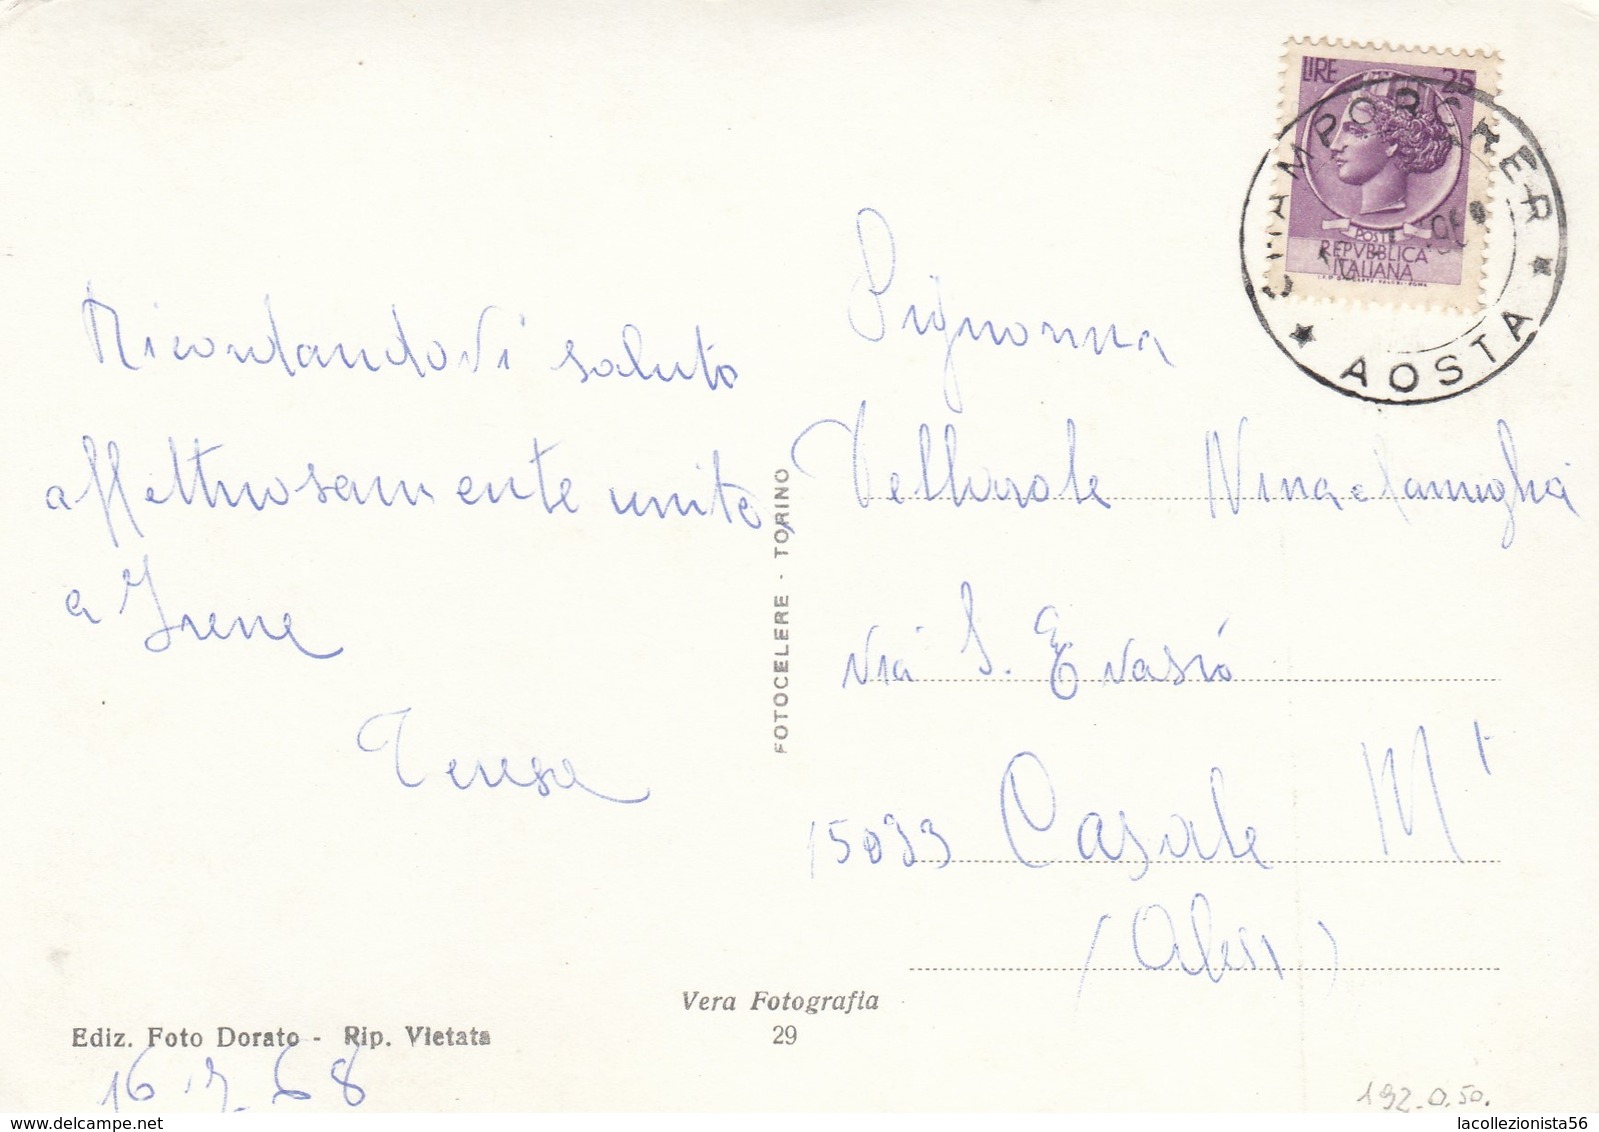 LIRE 25
POSTE
REPVBBLICA
ITALIANA
CHAMPORCHER
* AOSTA *
RicordandoVi saluto
affettuosamente unita
a Irene
Teresa
Signorina
Nina e famiglia
Via S. Evasio
15033 Casale Mt
(Aless)
FOTOCELERE - TORINO
Vera Fotografia
29
Ediz. Foto Dorato - Rip. Vietata
16.7.68
192.0.50.
lacollezionista56